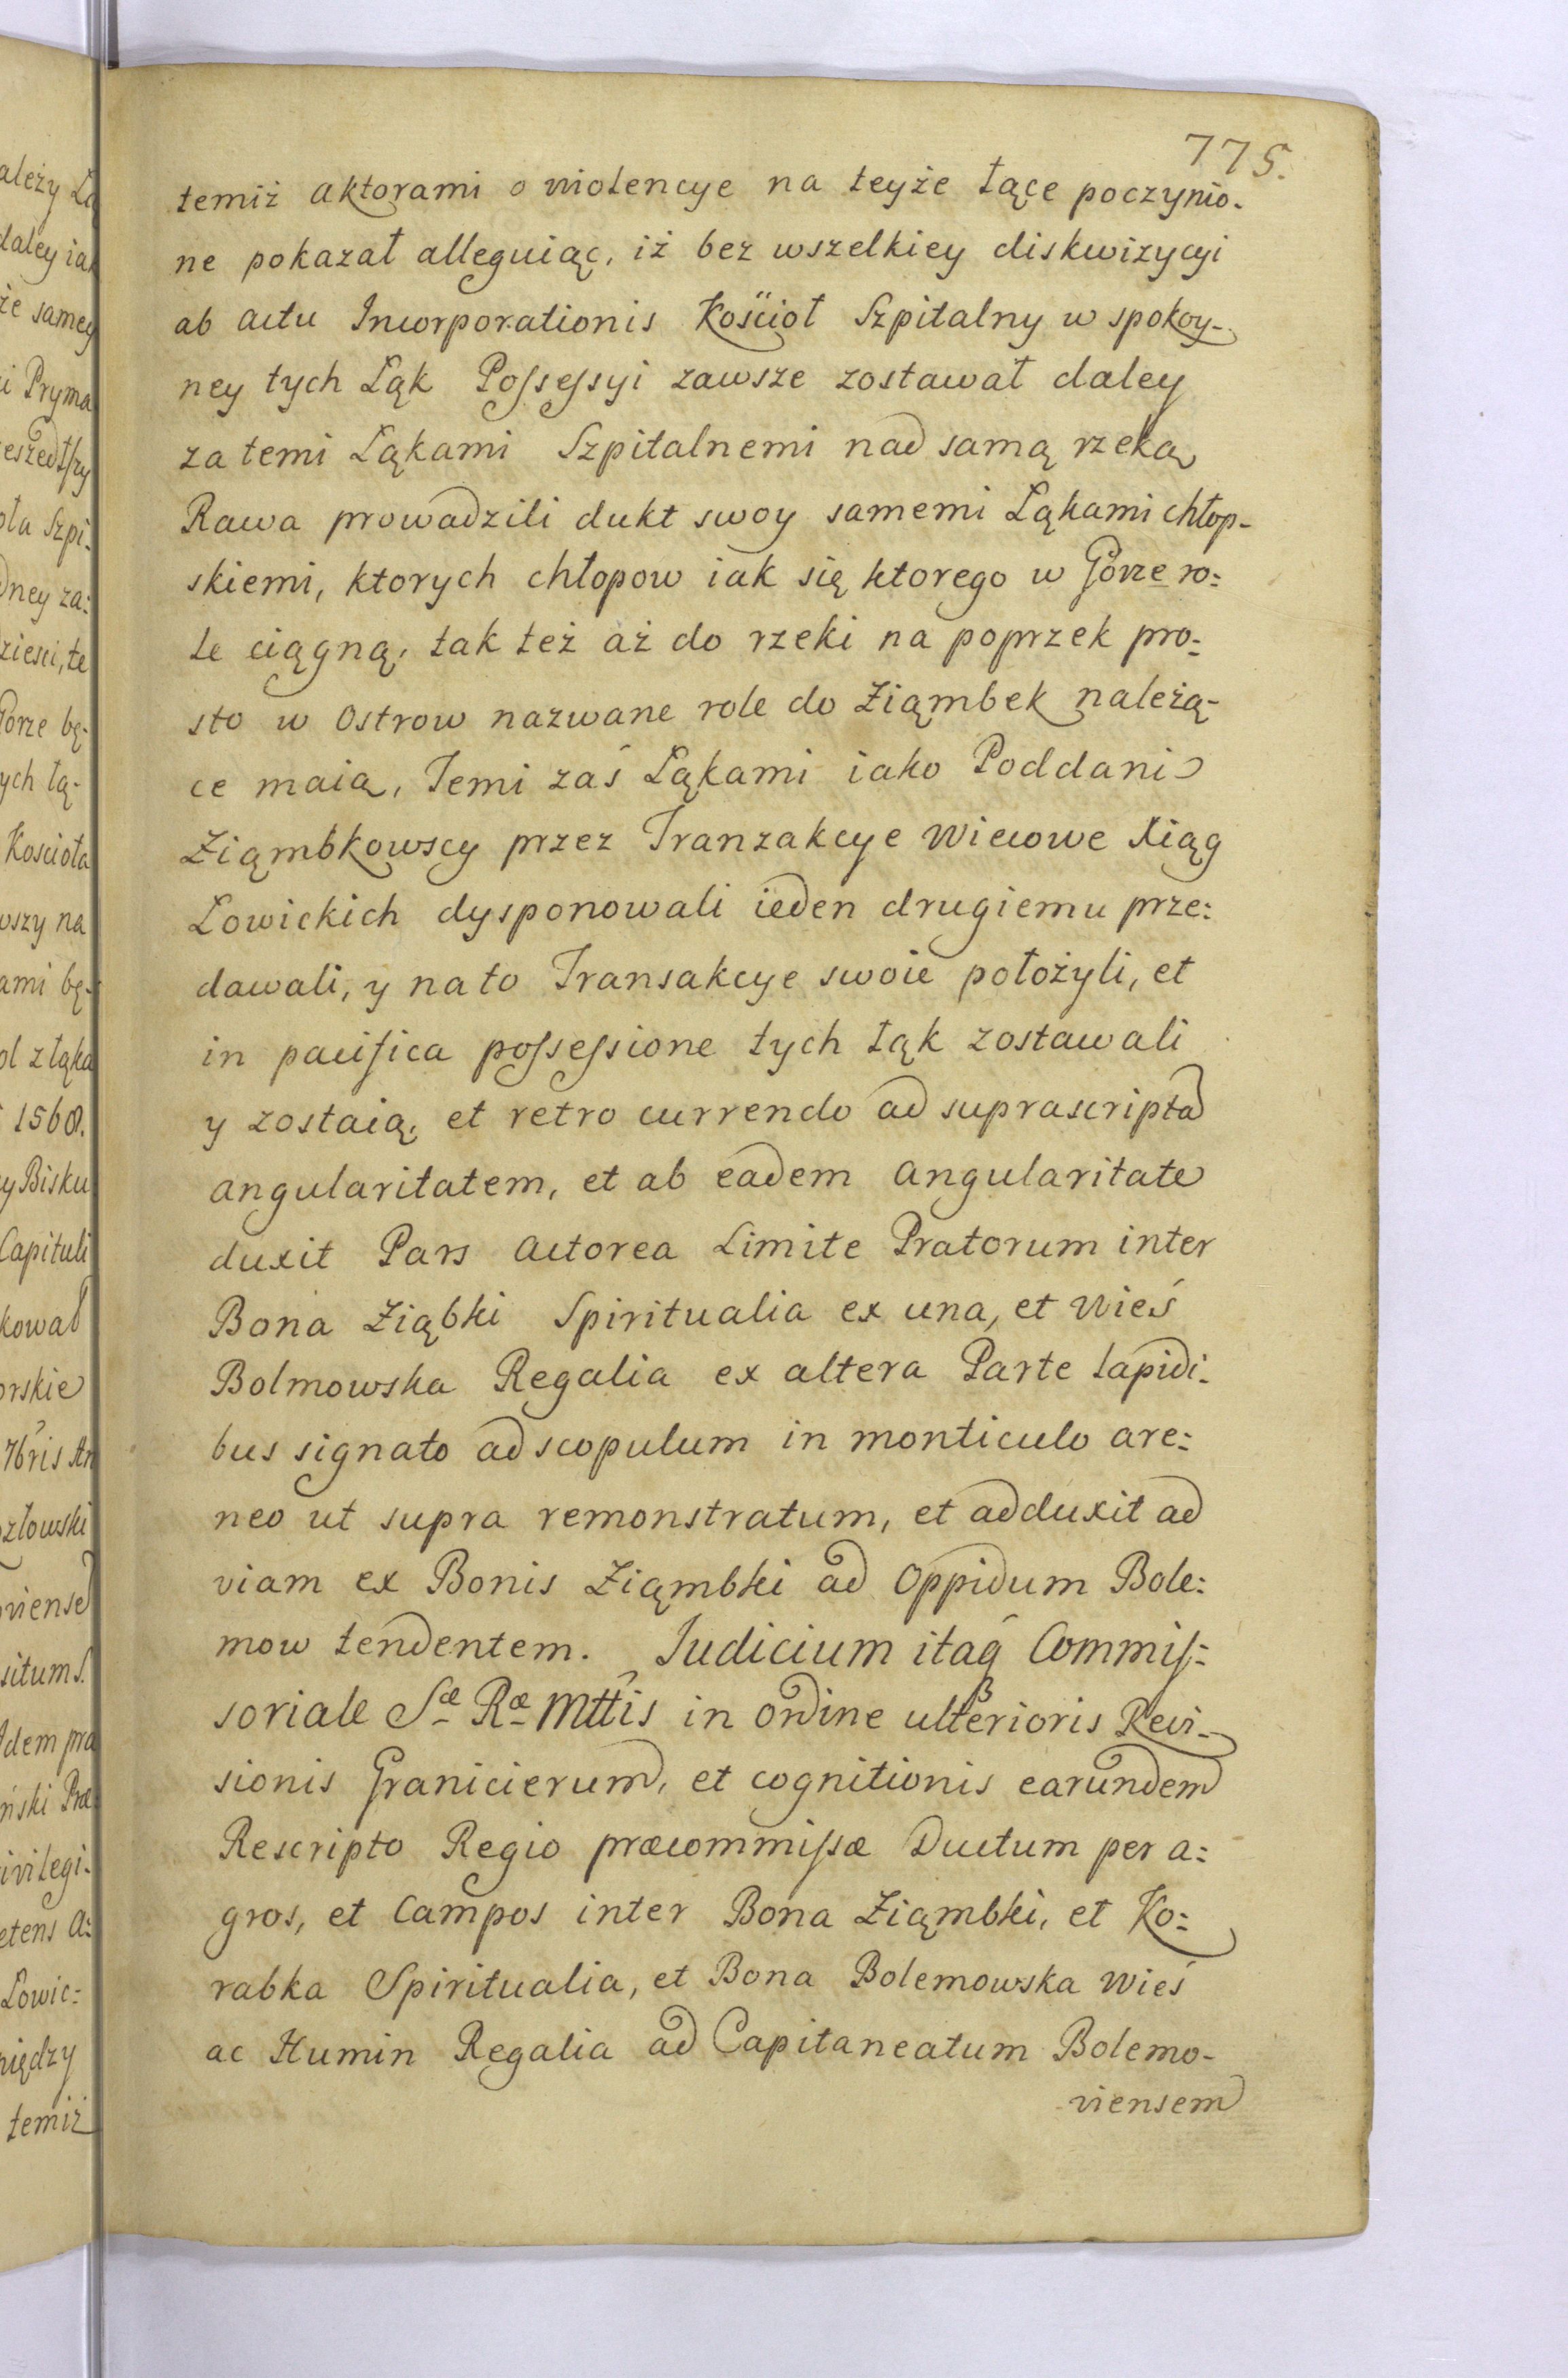 775.
temiż aktorami o violencye na teyże łące poczynio-
ne pokazał alleguiąc, iż bez wszelkiey diskwizycyi
ab actu Incorporationis Kościoł Szpitalny w spokoy-
ney tych Łąk Possessyi zawsze zostawał daley
za temi Łąkami Szpitalnemi nad samą rzeką
Rawa prowadzili dukt swoy samemi Łąkami chłop-
skiemi, ktorych chłopow iak się ktorego w Górze ro:
le ciągną, tak też aż do rzeki na poprzek pro:
sto w Ostrow nazwane role do Ziąmbek należą-
ce maią, Temi zaś Łąkami iako Poddani
Ziąmbkowscy przez Tranzakcye Wiecowe Xiąg
Łowickich dysponowali ieden drugiemu prze:
dawali, y na to Transakcye swoie położyli, et
in pacifica possessione tych łąk zostawali
y zostaią, et retro currendo ad suprascripta
angularitatem, et ab eadem angularitate
duxit Pars Actorea Limite Pratorum inter
Bona Ziąbki Spiritualia ex una, et Wieś
Bolmowska Regalia ex altera Parte lapidi:
bus signato ad scopulum in monticulo are:
neo ut supra remonstratum, et adduxit ad
viam ex Bonis Ziąmbki ad Oppidum Bole:
mow tendentem. Judicium itaq́ Commis:
soriale Sæ Ræ Mttis in ordine ulterioris Revi-
sionis Granicierum, et cognitionis earundem
Rescripto Regio præcommissæ Ductum per a:
gros, et Campos inter Bona Ziąmbki, et Ko:
rabka Spiritualia, et Bona Bolemowska Wieś
ac Humin Regalia ad Capitaneatum Bolemo-
viensem